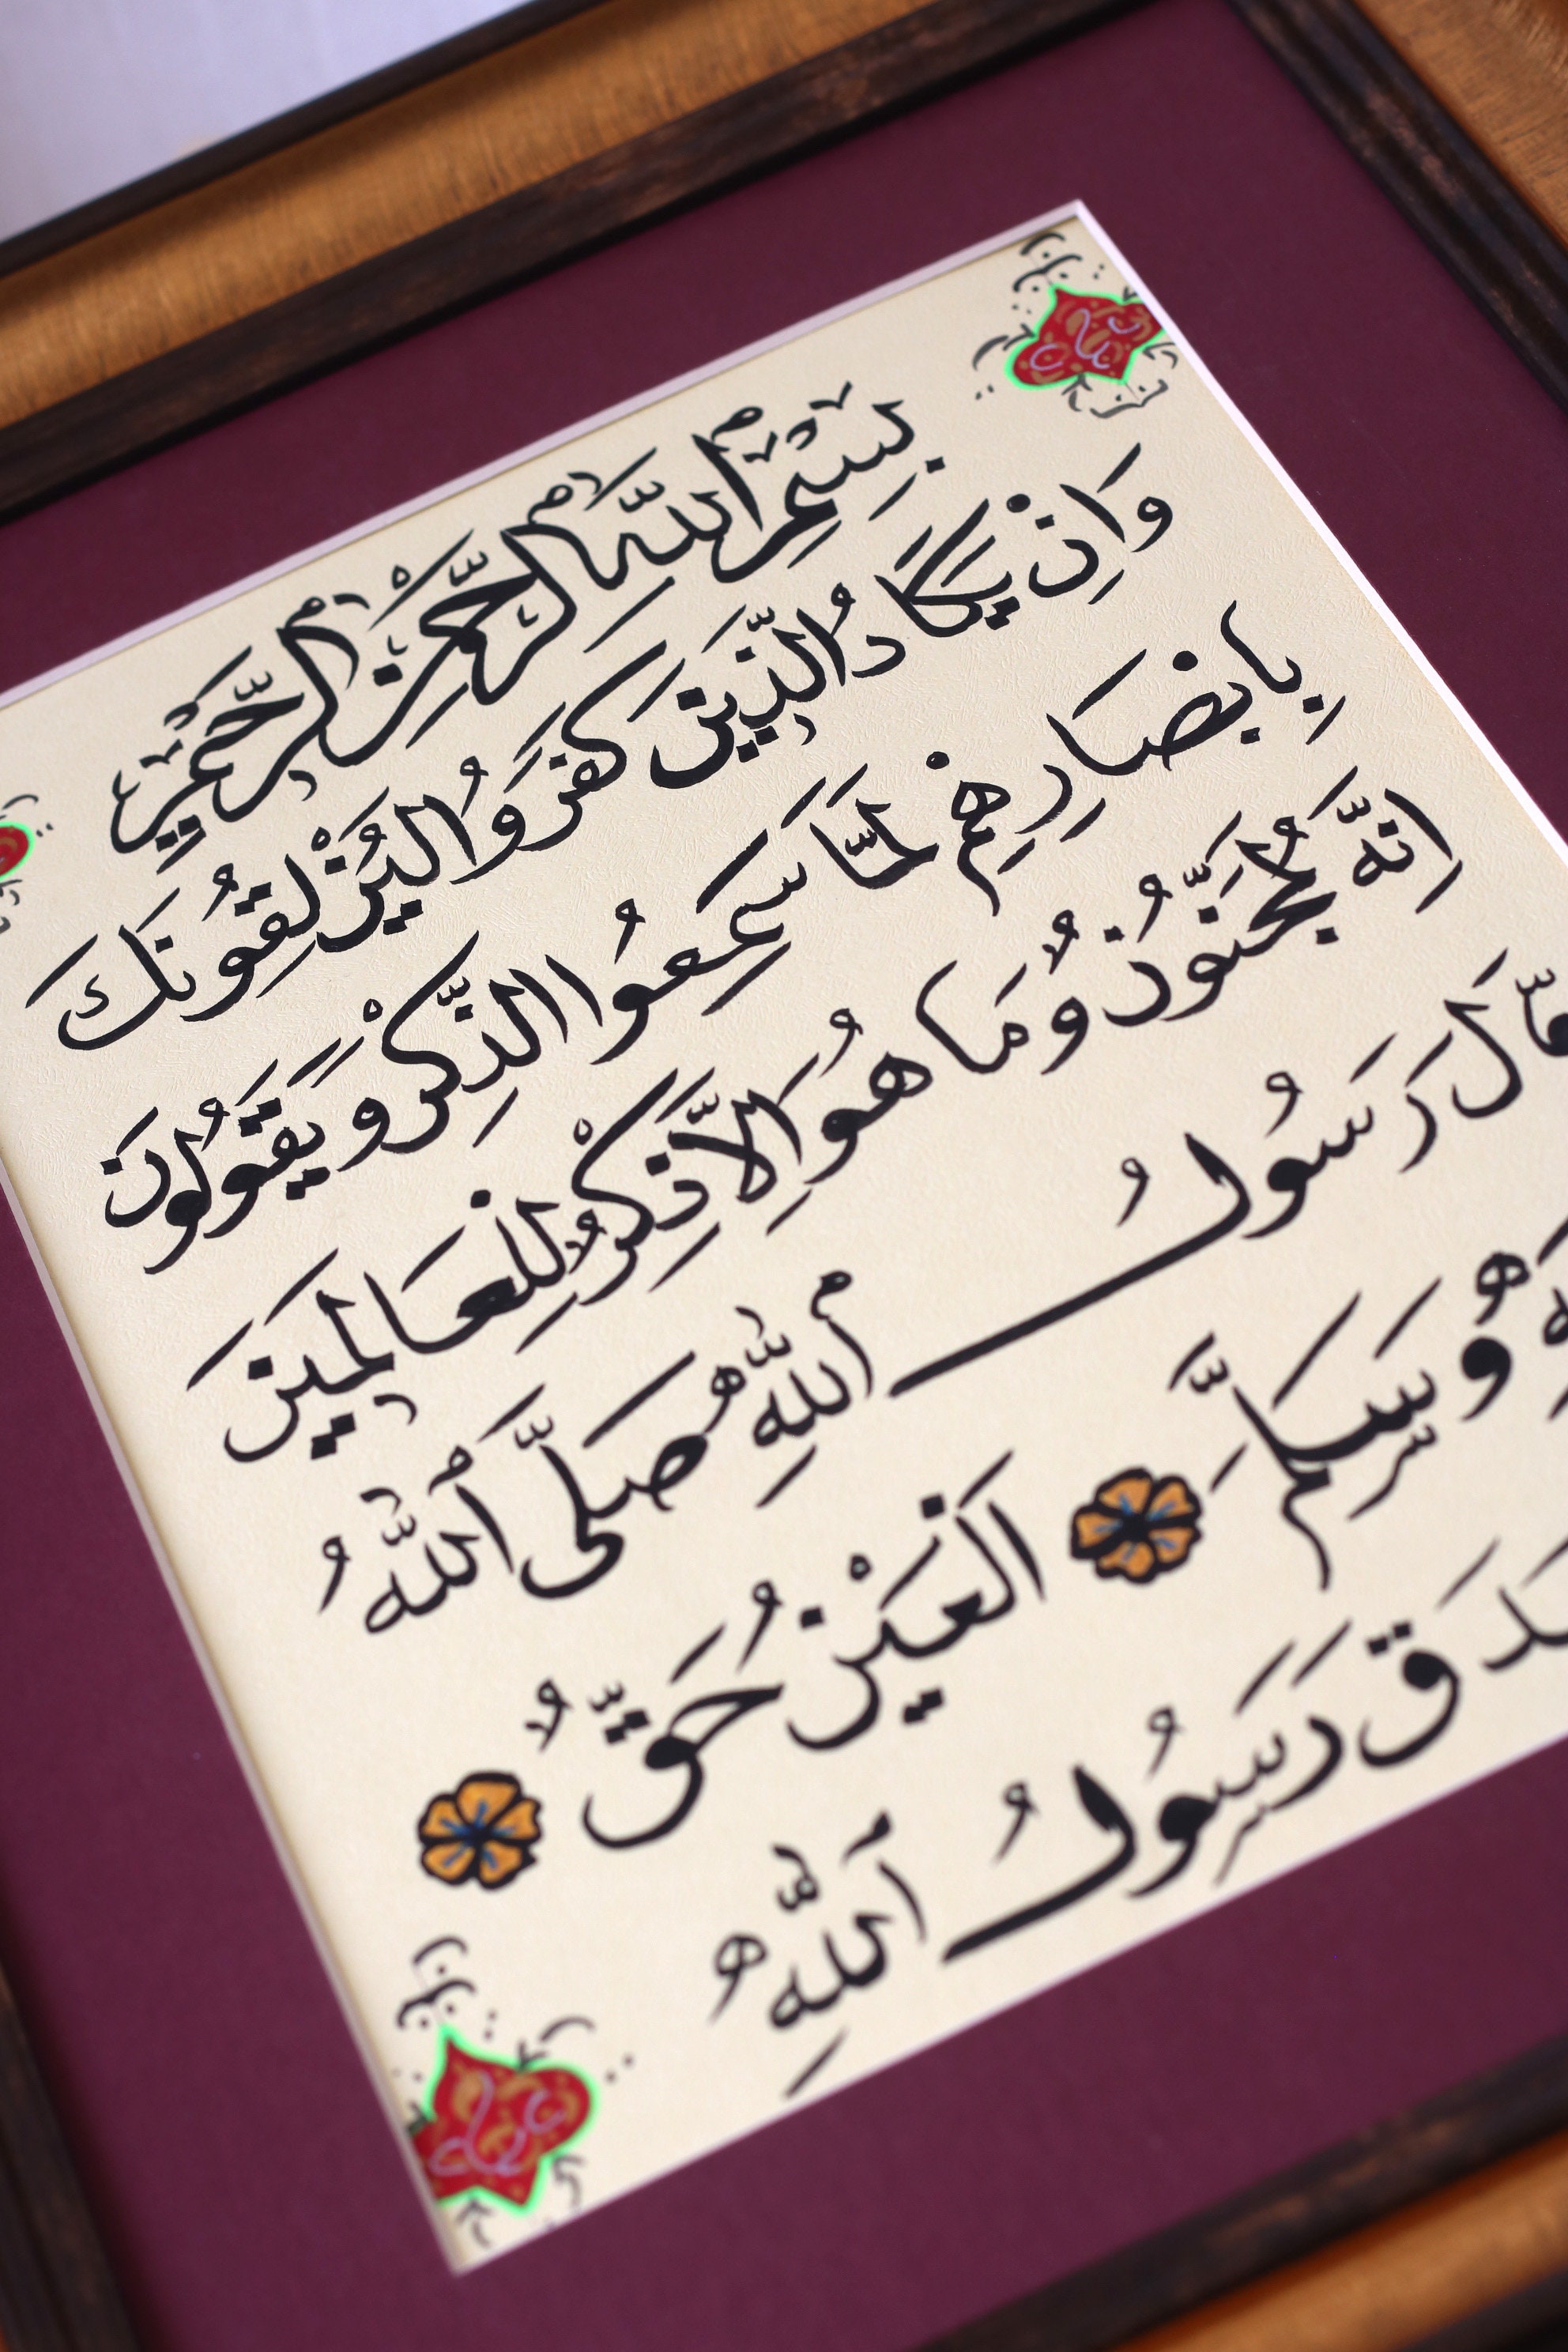 بِسْمِ اللَّهِ الرَّحْمٰنِ الرَّحِيمِ
وَاِنْ يَكَادُ الَّذِينَ كَفَرُوا لَيُزْلِقُونَكَ
بِاَبْصَارِهِمْ لَمَّا سَمِعُوا الذِّكْرَ وَيَقُولُونَ
اِنَّهُ لَمَجْنُونٌ وَمَا هُوَ اِلَّا ذِكْرٌ لِلْعَالَمِينَ
رَسُولُ اللّٰهِ صَلَّى اللّٰهُ
وَسَلَّمَ الْعَيْنُ حَقٌّ
رَسُولُ اللّٰهِ